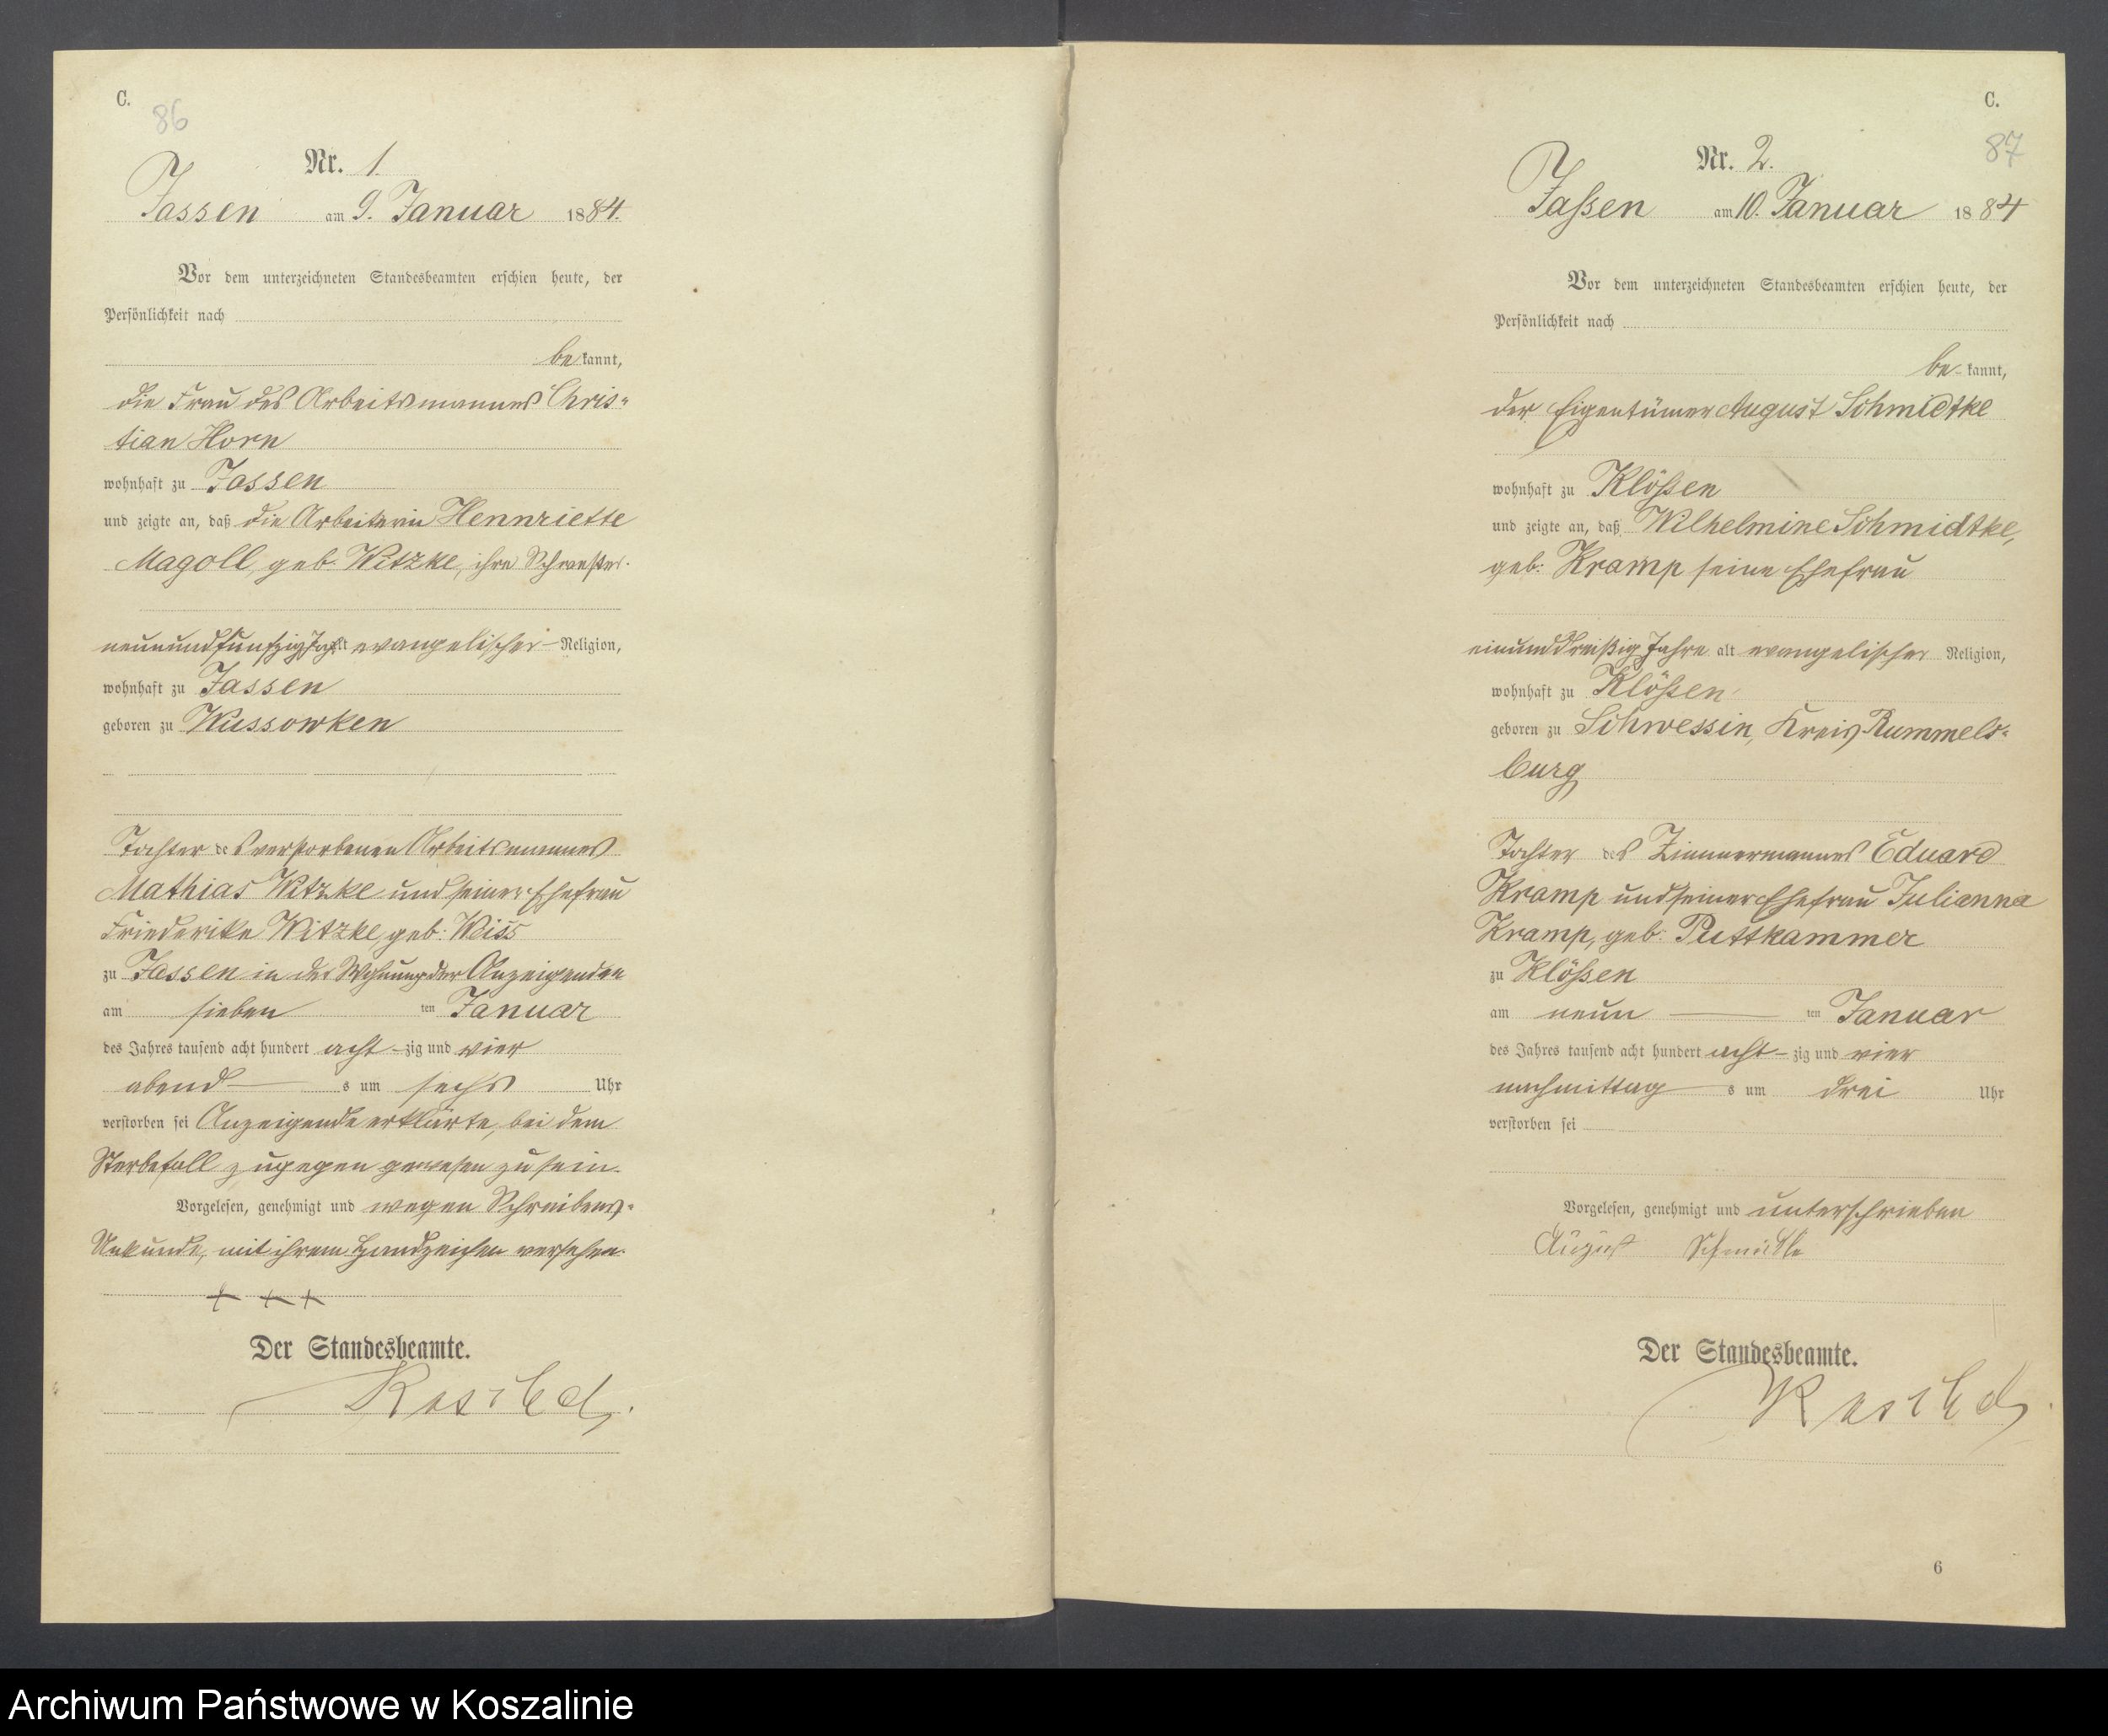 C.
86
Nr. 1.
Jassen am 9. Januar 1884.
Vor dem unterzeichneten Standesbeamten erschien heute, der
Persönlichkeit nach
bekannt,
die Frau des Arbeitsmannes Chris-
tian Horn
wohnhaft zu Jassen
und zeigte an, daß die Arbeiterin Hennriette
Magoll, geb. Witzke, ihre Schwester.
neunundfünfzig Jahre alt evangelischer Religion,
wohnhaft zu Jassen
geboren zu Wussowken
Tochter des verstorbenen Arbeitsmannes
Mathias Witzke und seiner Ehefrau
Friederike Witzke, geb. Weiss
zu Jassen in der Wohnung der Anzeigenden
am sieben ten Januar
des Jahres tausend acht hundert acht-zig und vier
abend s um sechs Uhr
verstorben sei Anzeigende erklärte, bei dem
Sterbefall zugegen gewesen zu sein.
Vorgelesen, genehmigt und wegen Schreibens-
Unkunde, mit ihrem Handzeichen versehen.
+ + +
Der Standesbeamte.
C.
87
Nr. 2.
Jaßen am 10. Januar 1884
Vor dem unterzeichneten Standesbeamten erschien heute, der
Persönlichkeit nach
be-kannt,
der Eigentümer August Schmidtke
wohnhaft zu Klößen
und zeigte an, daß Wilhelmine Schmidtke,
geb. Kramp seine Ehefrau
einunddreißig Jahre alt evangelischer Religion,
wohnhaft zu Klößen
geboren zu Schwessin, Kreis Rummels-
burg
Tochter des Zimmermannes Eduard
Kramp und seiner Ehefrau Julianna
Kramp, geb. Puttkammer
zu Klößen
am neun ten Januar
des Jahres tausend acht hundert acht-zig und vier
nachmittag s um drei Uhr
verstorben sei
Vorgelesen, genehmigt und unterschrieben
August Schmidtke
Der Standesbeamte.
6
Archiwum Państwowe w Koszalinie